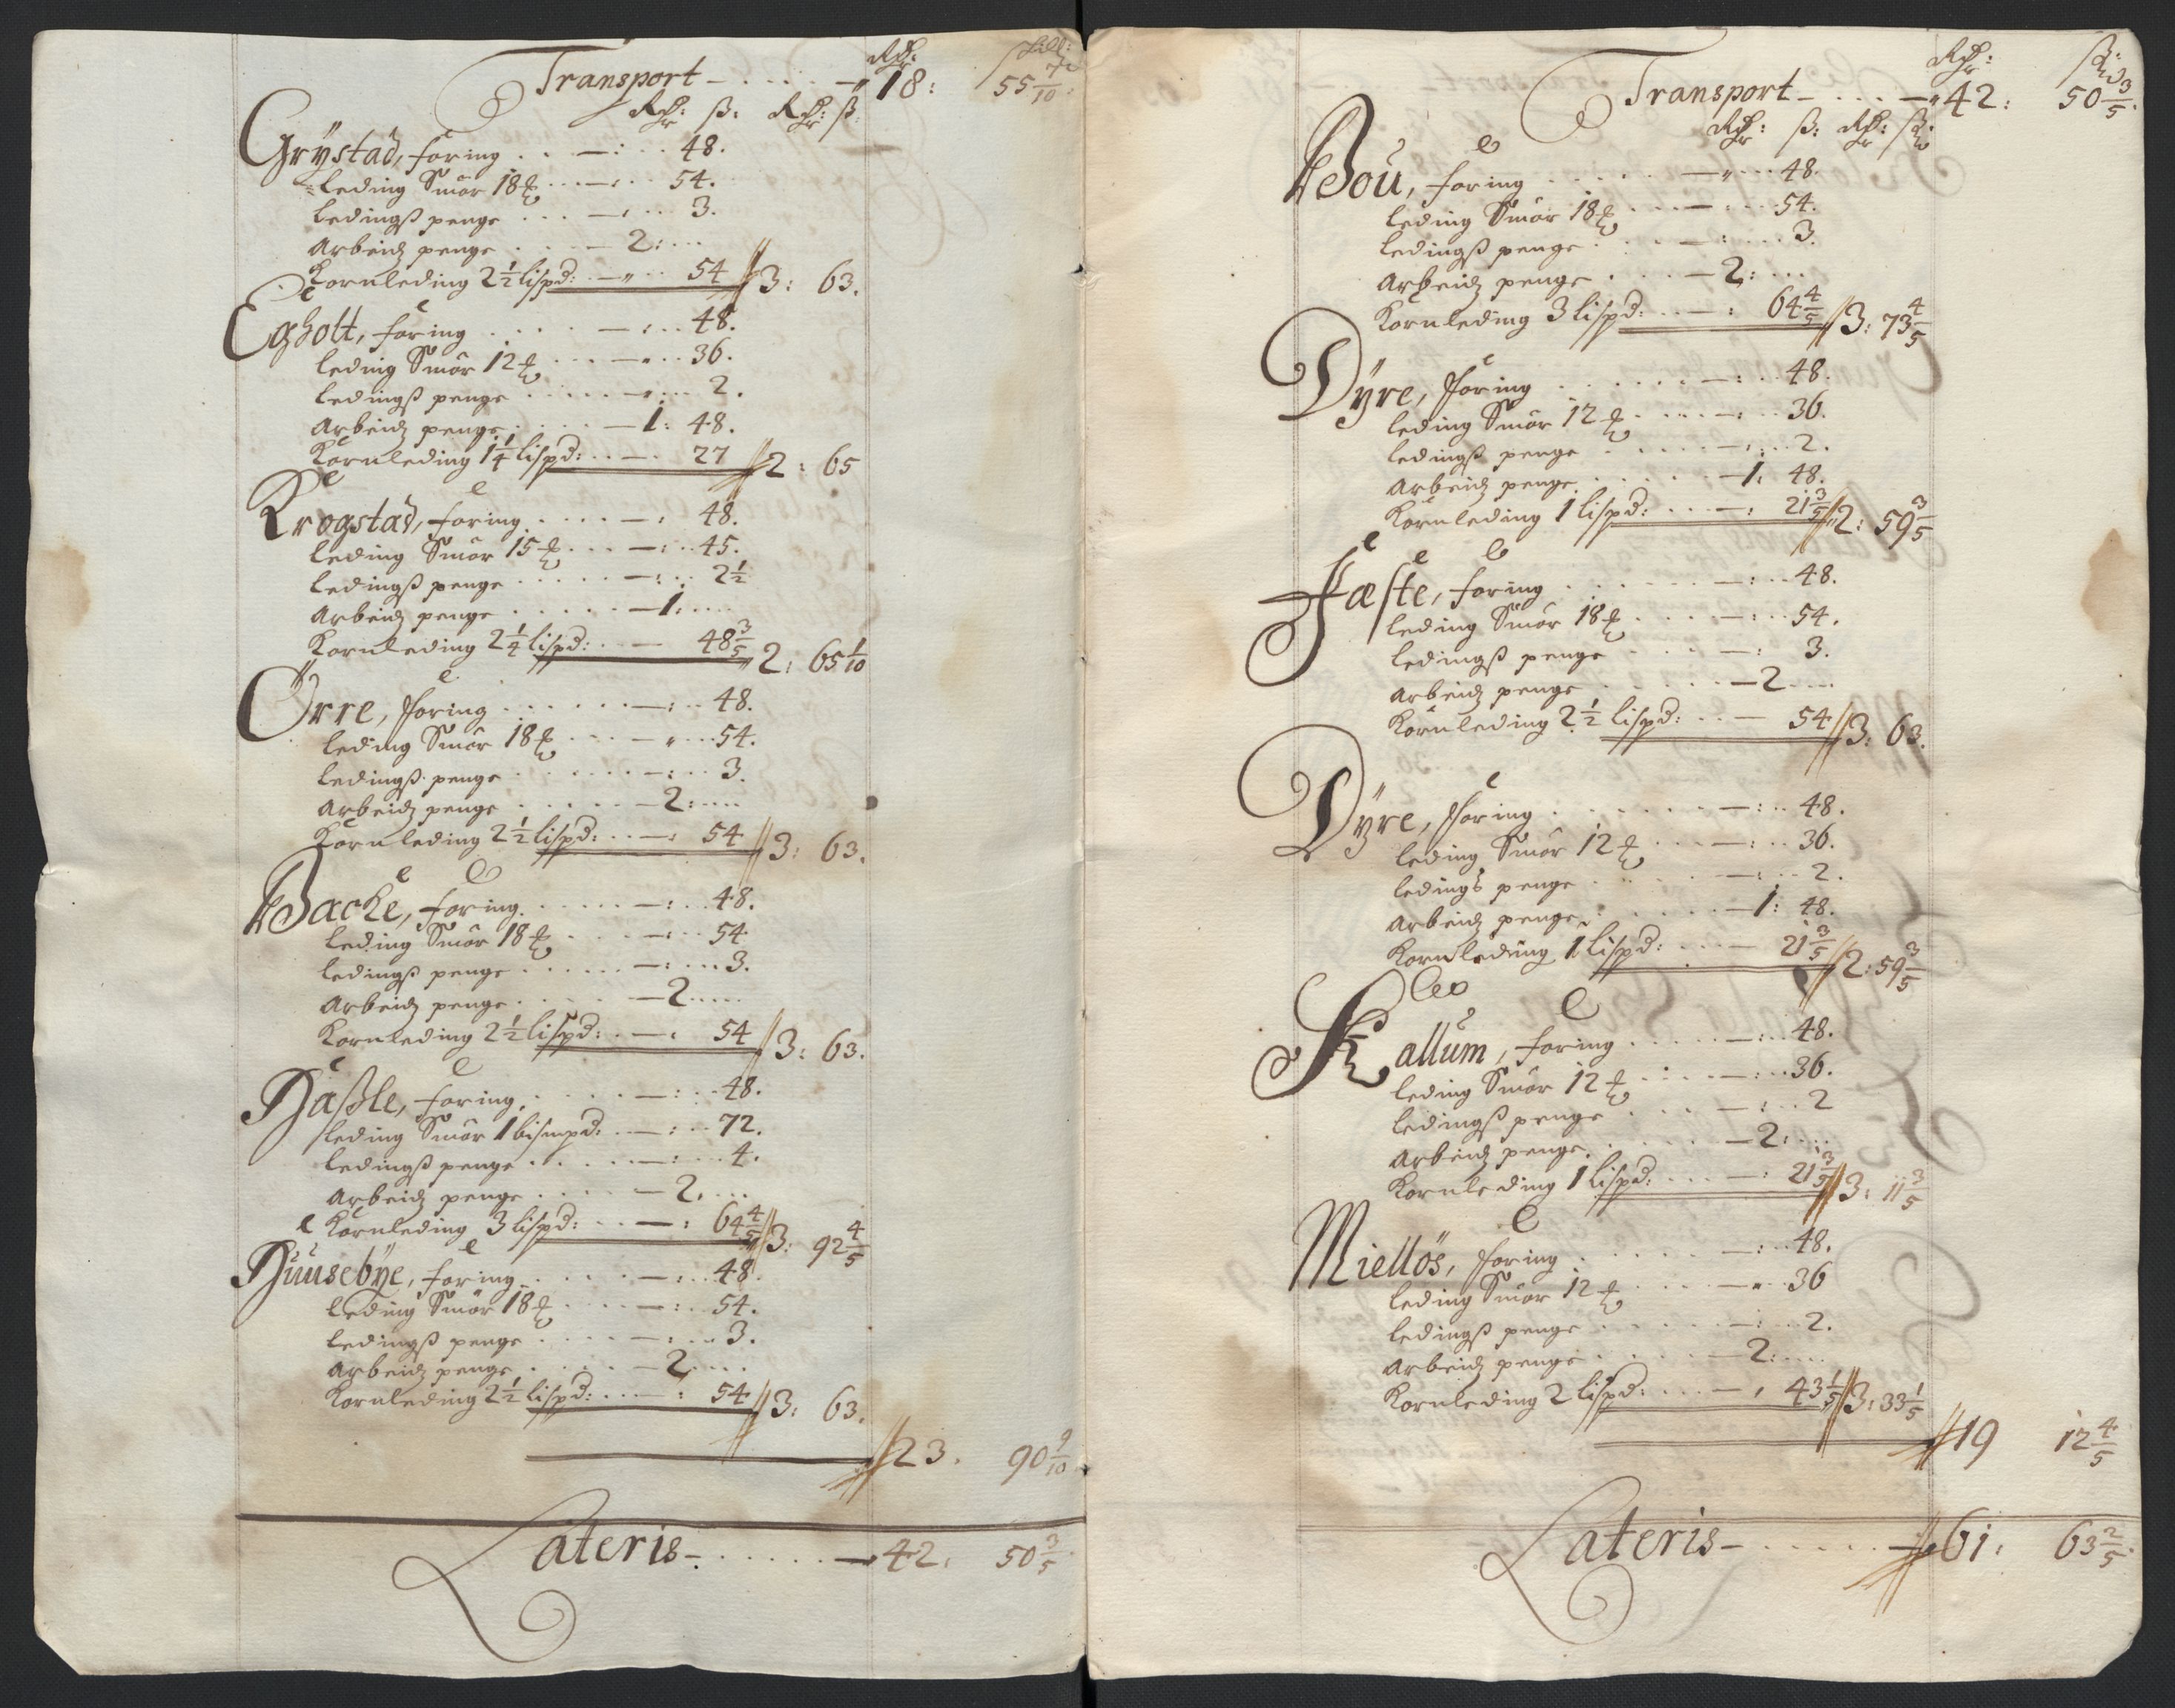 Rdr: skill:
Transport - . . . . — 18: 55 7/10.
Rdr: ß: Rdr: ß.
Grÿstad, foring . . —: . . 48.
leding Smör 18 ℔ . . . —: . . 54.
ledingß penge . . . . —: . . . 3.
Arbeidz penge . . . — 2: . . .
Kornleding 2 1/2 lispd: . . —" . . 54 // 3: 63.
Egholt, foring . . . . —: . . 48.
leding Smör 12 ℔ . . . —" . . 36.
ledingß penge . . . . . —: . . . 2.
Arbeidz penge . . . . — 1: 48.
Kornleding 1 1/4 lispd: . . — . 27 // 2: 65
Krogstad, foring . . . . —: 48.
leding Smör 15 ℔ . . . —: . . 45.
ledingß penge . . . . . —: . . 2 1/2
Arbeidz penge . . . . . — 1. . . . .
Kornleding 2 1/4 lispd: . . — 48 3/5 " 2: 65 1/10
Örre, foring . . . . . . —: . . 48.
leding Smör 18 ℔ . . . — " . . . 54.
ledingß penge . . . . . . —: . . 3.
Arbeidz penge . . . . . — 2: . . . .
Kornleding 2 1/2 lispd: . . —: 54 // 3: 63.
Backe, foring . . . . . —: . . 48.
leding Smör 18 ℔ . . . —: . . 54
ledingß penge . . . . . —: . . . 3.
Arbeidz penge . . . . — 2 . . . . .
Kornleding 2 1/2 lispd: . —: 54 // 3: 63.
Haßle, foring . . . . . —: . . 48.
leding Smör 1 bismpd: . . —: . . 72.
ledingß penge . . . . . —: . . 4.
Arbeidz penge . . . . — 2. . . .
Kornleding 3 lispd: . . —: 64 4/5 // 3: 92 4/5
Huusebÿe, foring . . . . —: . . 48.
leding Smör 18 ℔ . . . . —: . . 54.
ledingß penge . . . . . —: . . 3.
Arbeidz penge . . . . . — 2. . . .
Kornleding 2 1/2 lispd: . . . —: 54 // 3: 63.
// 23. 90 9/10
Lateris - . . . . . . — 42. 50 3/5.
Rdr: ß:
Transport - . . . . — 42: 50 3/5.
Rdr: ß: Rdr: ß:
Bou, foring . . . . . . —" . . . 48.
leding Smör 18 ℔ . . . — . . . 54.
ledingß penge . . . . —: . . . 3.
Arbeidz penge . . . . — 2: . . .
Kornleding 3 lispd: . . . —: 64 4/5 // 3: 73 4/5
Dÿre, foring . . . . . . —: . . 48.
leding Smör 12 ℔ . . . . —: . . 36.
ledingß penge . . . . . . —: . . 2.
Arbeidz penge . . . . . . — 1: 48.
Kornleding 1 lispd: . . . —: 21 3/5 // 2: 59 3/5
Fæste, foring . . . . . . —: . . 48.
leding Smör 18 ℔ . . . . —: . . 54.
ledingß penge . . . . —: 3.
Arbeidz penge . . . . . — 2 . . . .
Kornleding 2 1/2 lispd: . . — 54 // 3: 63.
Dÿre, foring . . . . . . . —: . . 48.
leding Smör 12 ℔ . . . —: . . 36.
ledings penge . . . . . —: . . 2.
Arbeidz penge . . . . . — 1: 48.
Kornleding 1 lispd: . . . — 21 3/5 // 2: 59 3/5
Kallum, foring . . . . . —: . . 48.
leding Smör 12 ℔ . . . . —: . . 36.
ledingß penge . . . . —: . . 2
Arbeidz penge . . . . . — 2: . . .
Kornleding 1 lispd: . . . . —: 21 3/5 // 3: 11 3/5
Miellös, foring . . . . . —: . . 48.
leding Smör 12 ℔ . . . . —" . . 36
ledingß penge . . . . . —: . . 2.
Arbeidz penge . . . . . — 2: . . . .
Kornleding 2 lispd: . . . — , 43 1/5 // 3: 33 1/5
// 19 12 4/5
Lateris - . . . . . . — 61: 63 2/5.